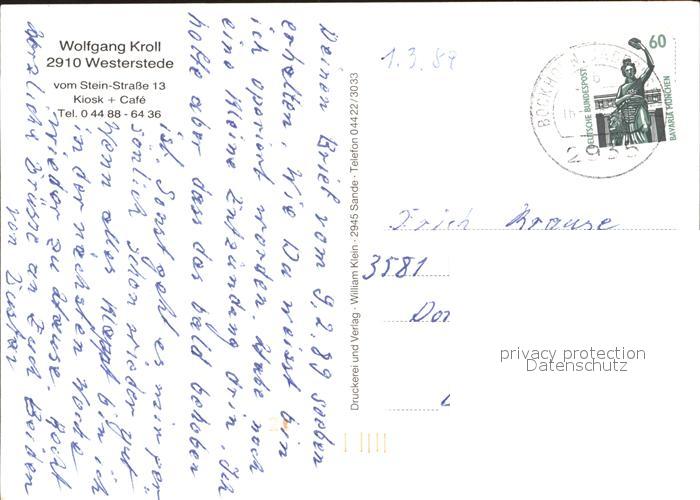 Wolfgang Kroll
2910 Westerstede
vom Stein-Straße 13
Kiosk + Café
Tel. 0 44 88 - 64 36
1.3.89
Deinen Brief vom 9.2.89 soeben
erhalten. Wie Du weisst bin
ich operiert worden. Habe noch
eine kleine Entzündung drin. Ich
hoffe aber dass das bald behoben
ist. Sonst geht es mir per-
sönlich schon wieder gut
Wenn alles klappt bin ich
in der nächsten Woche
wieder zu Hause. Recht
herzliche Grüsse an Euch Beiden
von Gustav
Druckerei und Verlag · William Klein · 2945 Sande · Telefon 04422/3033
DEUTSCHE BUNDESPOST
60
BAVARIA MÜNCHEN
Erich Krause
3581
privacy protection
Datenschutz